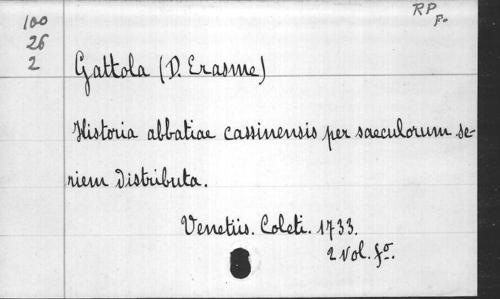 100
26
2
RP
f.
Gattola (D. Erasme)
Historia abbatiae cassinensis per saeculorum se-
riem distributa.
Venetiis. Coleti. 1733.
2 vol. fº.